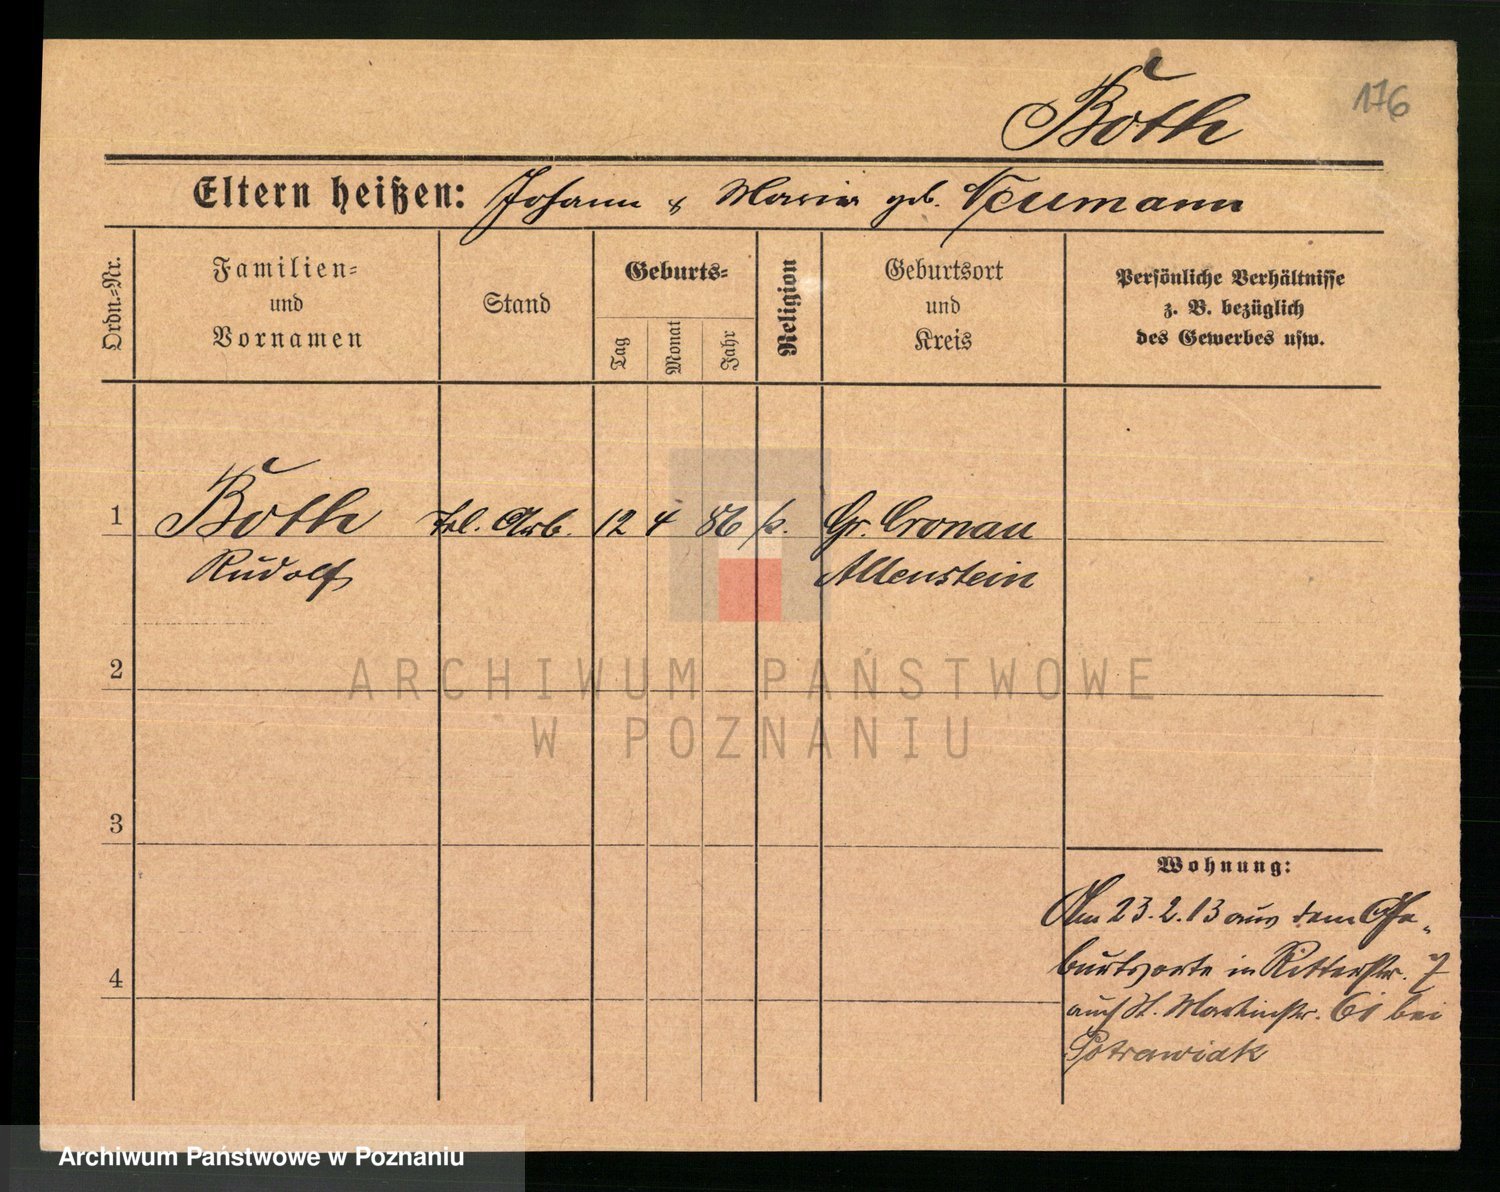 176
Both
Eltern heißen: Johann & Maria geb. Neumann
Ordn.=Nr.
Familien=
und
Vornamen
Stand
Geburts=
Tag
Monat
Jahr
Religion
Geburtsort
und
Kreis
Persönliche Verhältnisse
z. B. bezüglich
des Gewerbes usw.
1 Both Arb. 12 4 86 k. Gr. Cronau
Rudolf Allenstein
2
3
4
Wohnung:
Am 23.2.13 aus dem Ge-
burtsorte in Ritterstr. 7
auch St. Martinstr. bei
Potrawiak
ARCHIWUM PAŃSTWOWE
W POZNANIU
Archiwum Państwowe w Poznaniu